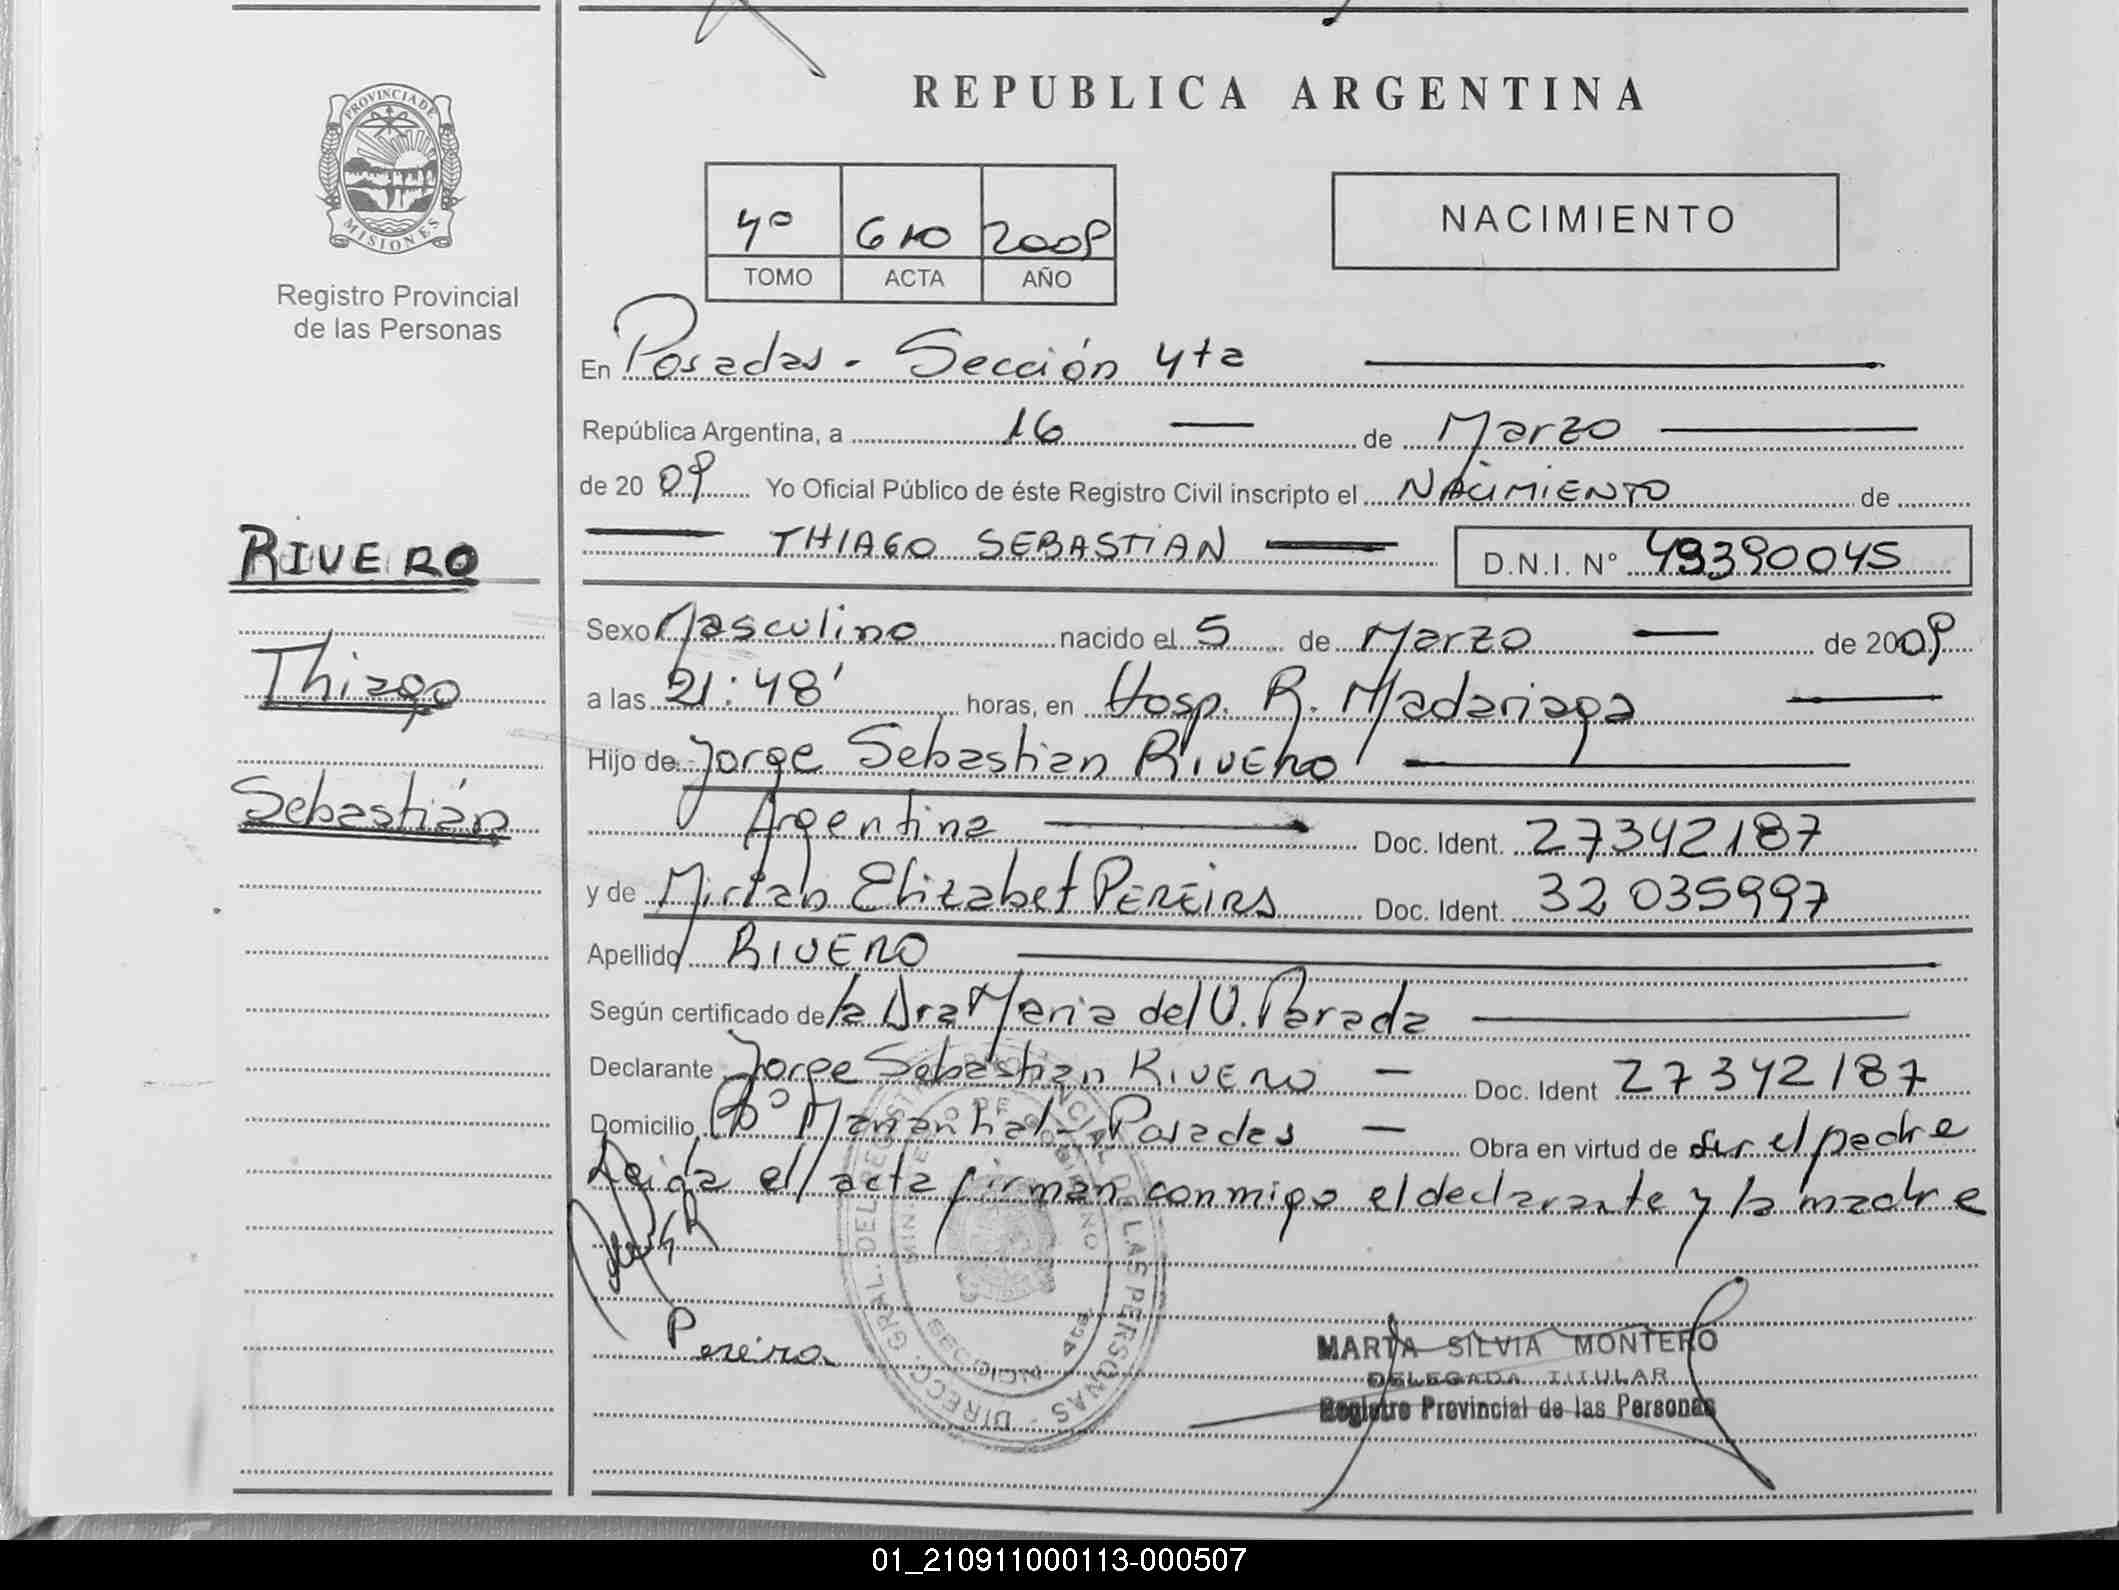 PROVINCIA DE
MISIONES
Registro Provincial
de las Personas
RIVERO
Thiago
Sebastián
REPUBLICA ARGENTINA
4º 610 2009
TOMO ACTA AÑO
NACIMIENTO
En Posadas - Sección 4ta
República Argentina, a 16 de Marzo
de 2009 Yo Oficial Público de éste Registro Civil inscripto el NACIMIENTO de
THIAGO SEBASTIAN D.N.I. Nº 49390045
Sexo Masculino nacido el 5 de Marzo de 2009
a las 21:48' horas, en Hosp. R. Madariaga
Hijo de Jorge Sebastian RIVERO
Argentina Doc. Ident. 27342187
y de Mirian Elizabet PEREIRA Doc. Ident. 32 035997
Apellido RIVERO
Según certificado de la Dra Maria del V. Parada
Declarante Jorge Sebastian RIVERO - Doc. Ident 27342187
Domicilio Bº Manantial - Posadas - Obra en virtud de ser el padre
Leida el acta firman conmigo el declarante y la madre
Pereira
DIRECC. GRAL. DEL REGISTRO PROVINCIAL DE LAS PERSONAS
MIN. DE GOBIERNO
4ta.
MARTA SILVIA MONTERO
DELEGADA TITULAR
Registro Provincial de las Personas
01_210911000113-000507